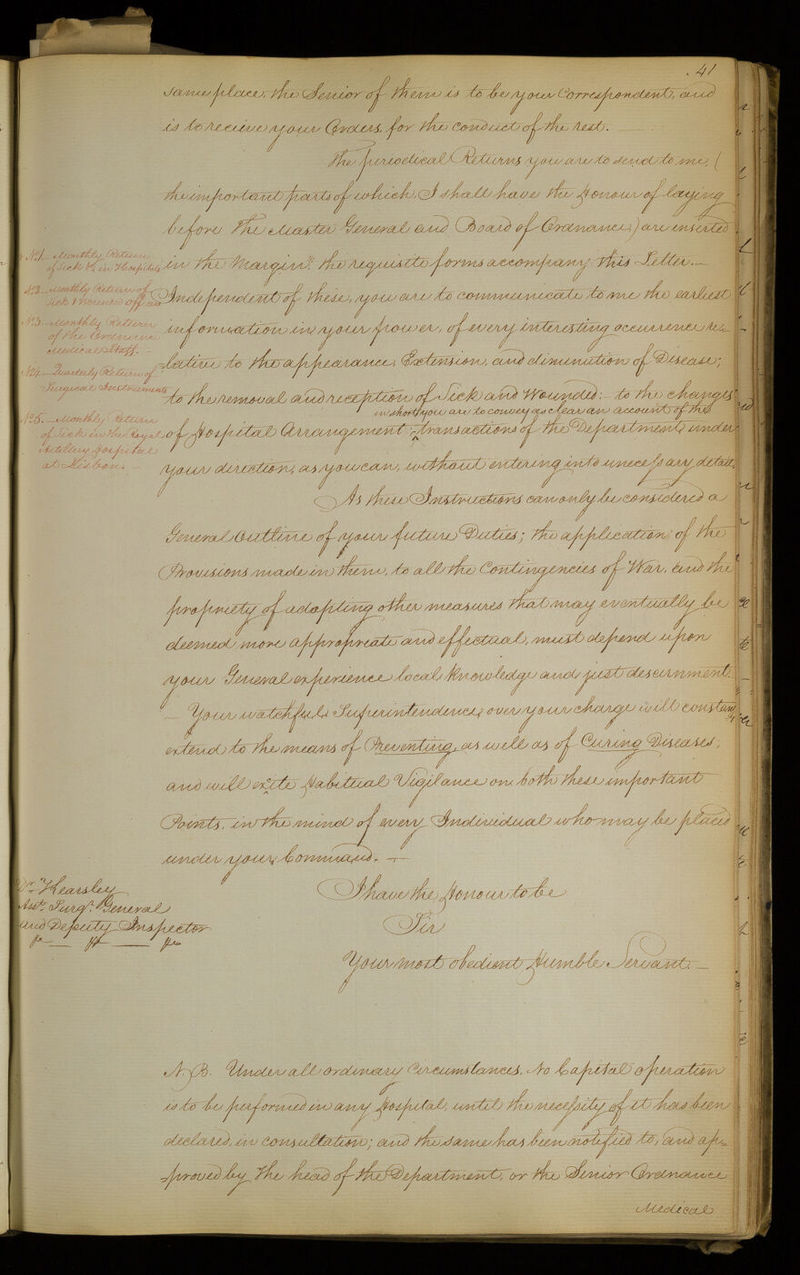 41
same place, the Senior of them is to be your Correspondent, and
is to receive your Orders, for the conduct of the rest.
The periodical Returns you are to send to me, (
the important parts of which, I shall have the Honour of laying
before The Master General and Board of Ordnance,) are inserted
in the Margin: the requisite forms accompany this Letter.—
Independent of these, you are to communicate to me the earliest
information in your power, of every interesting occurrence re=
=lative to the appearance, Extension, and diminution of Disease;
to the removal and reception of Sick and Wounded:- to the changes
in short you are to convey as clear an account of the
of Hospital Arrangement transactions of the Department under
your direction, as you can, without entering into unnecessary detail.
As these Instructions can only be considered a
General Outline of your future Duties; the application of the
Provisions made in them, to all the Contingencies of War, and the
propriety of adopting other measures that may eventually be
deemed more appropriate and effectual, must depend upon
your General experience local knowledge and just discernment.
— Your watchful Superintendence over your charge will constantly
extend to the means of Preventing, as well as of Curing Diseases,
and will excite Habitual Vigilance on both these important
Points, in the mind of every Individual who may be placed
under your Command. —
I have the Honour to be
Sir
Your most obedient Humble Servant.—
No. 1 — Monthly Return
of Sick &c in Hospitals
No. 2 — Monthly Return of
Sick & Wounded Officers
No. 3 — Monthly Return
of the Ordnance
Medical Staff. —
No. 4 — Quarterly Return of
Surgical Instruments
No. 5. — Monthly Return
of Sick in the Royal
Artillery Hospital
at Lisbon. —
Dr. Kearsley
Asst. Surgn. General
and Deputy Inspector
&c — &c — &c
N.B. Under all ordinary Circumstances, No Capital operation
is to be performed in any Hospital, until the necessity of it has been
declared, in consultation; and the same has been notified to, and ap=
=proved by The head of the Department, or the Senior Ordnance
Medical